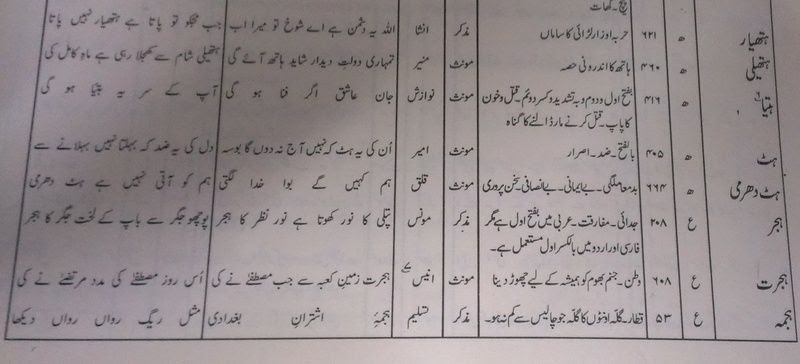 پیچ۔ گھات
ہتھیار ھ ۶۲۱ حربہ اوزار لڑائی کا ساماں مذکر انشا اللہ یہ دشمن ہے اے شوخ تو میرا اب جب مجکو تو پاتا ہے ہتھیار نہیں پاتا
ہتھیلی ھ ۴۶۰ ہاتھ کا اندرونی حصہ مونث منیر تمہاری دولتِ دیدار شاید ہاتھ آئے گی ہتھیلی شام سے کھجلا رہی ہے ماہِ کامل کی
ہتیا ھ ۴۱۶ بفتح اول و دوم و بہ تشدید و کسر دوئم۔ قتل و خون مونث نوازش جان عاشق اگر فنا ہو گی آپ کے سر یہ ہتیا ہو گی
کا پاپ۔ قتل کرنے مار ڈالنے کا گناہ
ہٹ ھ ۴۰۵ بالفتح۔ ضد۔ اصرار مونث امیر اُن کی یہ ہٹ کہ نہیں آج نہ دوں گا بوسہ دل کی یہ ضد کہ بہلتا نہیں بہلانے سے
ہٹ دھرمی ھ ۶۶۴ بدمعاملگی۔ بے ایمانی۔ بے انصافی۔ سخن پروری مونث قلق ہم کہیں گے بوا خدا لگتی ہم کو آتی نہیں ہے ہٹ دھرمی
ہجر ع ۲۰۸ جدائی۔ مفارقت۔ عربی میں بفتح اول ہے مگر مذکر مونس پتلی کا نور کھوتا ہے نور نظر کا ہجر پوچھو جگر سے باپ کے لخت جگر کا ہجر
فارسی اور اردو میں بالکسر اول مستعمل ہے۔
ہجرت ع ۶۰۸ وطن۔ جنم بھوم کو ہمیشہ کے لیے چھوڑ دینا مونث انیس ہجرت زمینِ کعبہ سے جب مصطفےٰ نے کی اُس روز مصطفےٰ کی مدد مرتضےٰ نے کی
ہجمہ ع ۵۳ قطار۔ گلّہ اونٹوں کا گلّہ جو چالیس سے کم نہ ہو۔ مذکر تسلیم ہجمۂ اشترانِ بغدادی مثل ریگ رواں رواں دیکھا